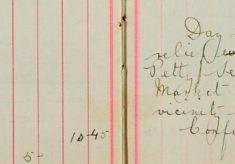 Day
relief
Petty Se
Market
vicinity
Conf
10-45
5-